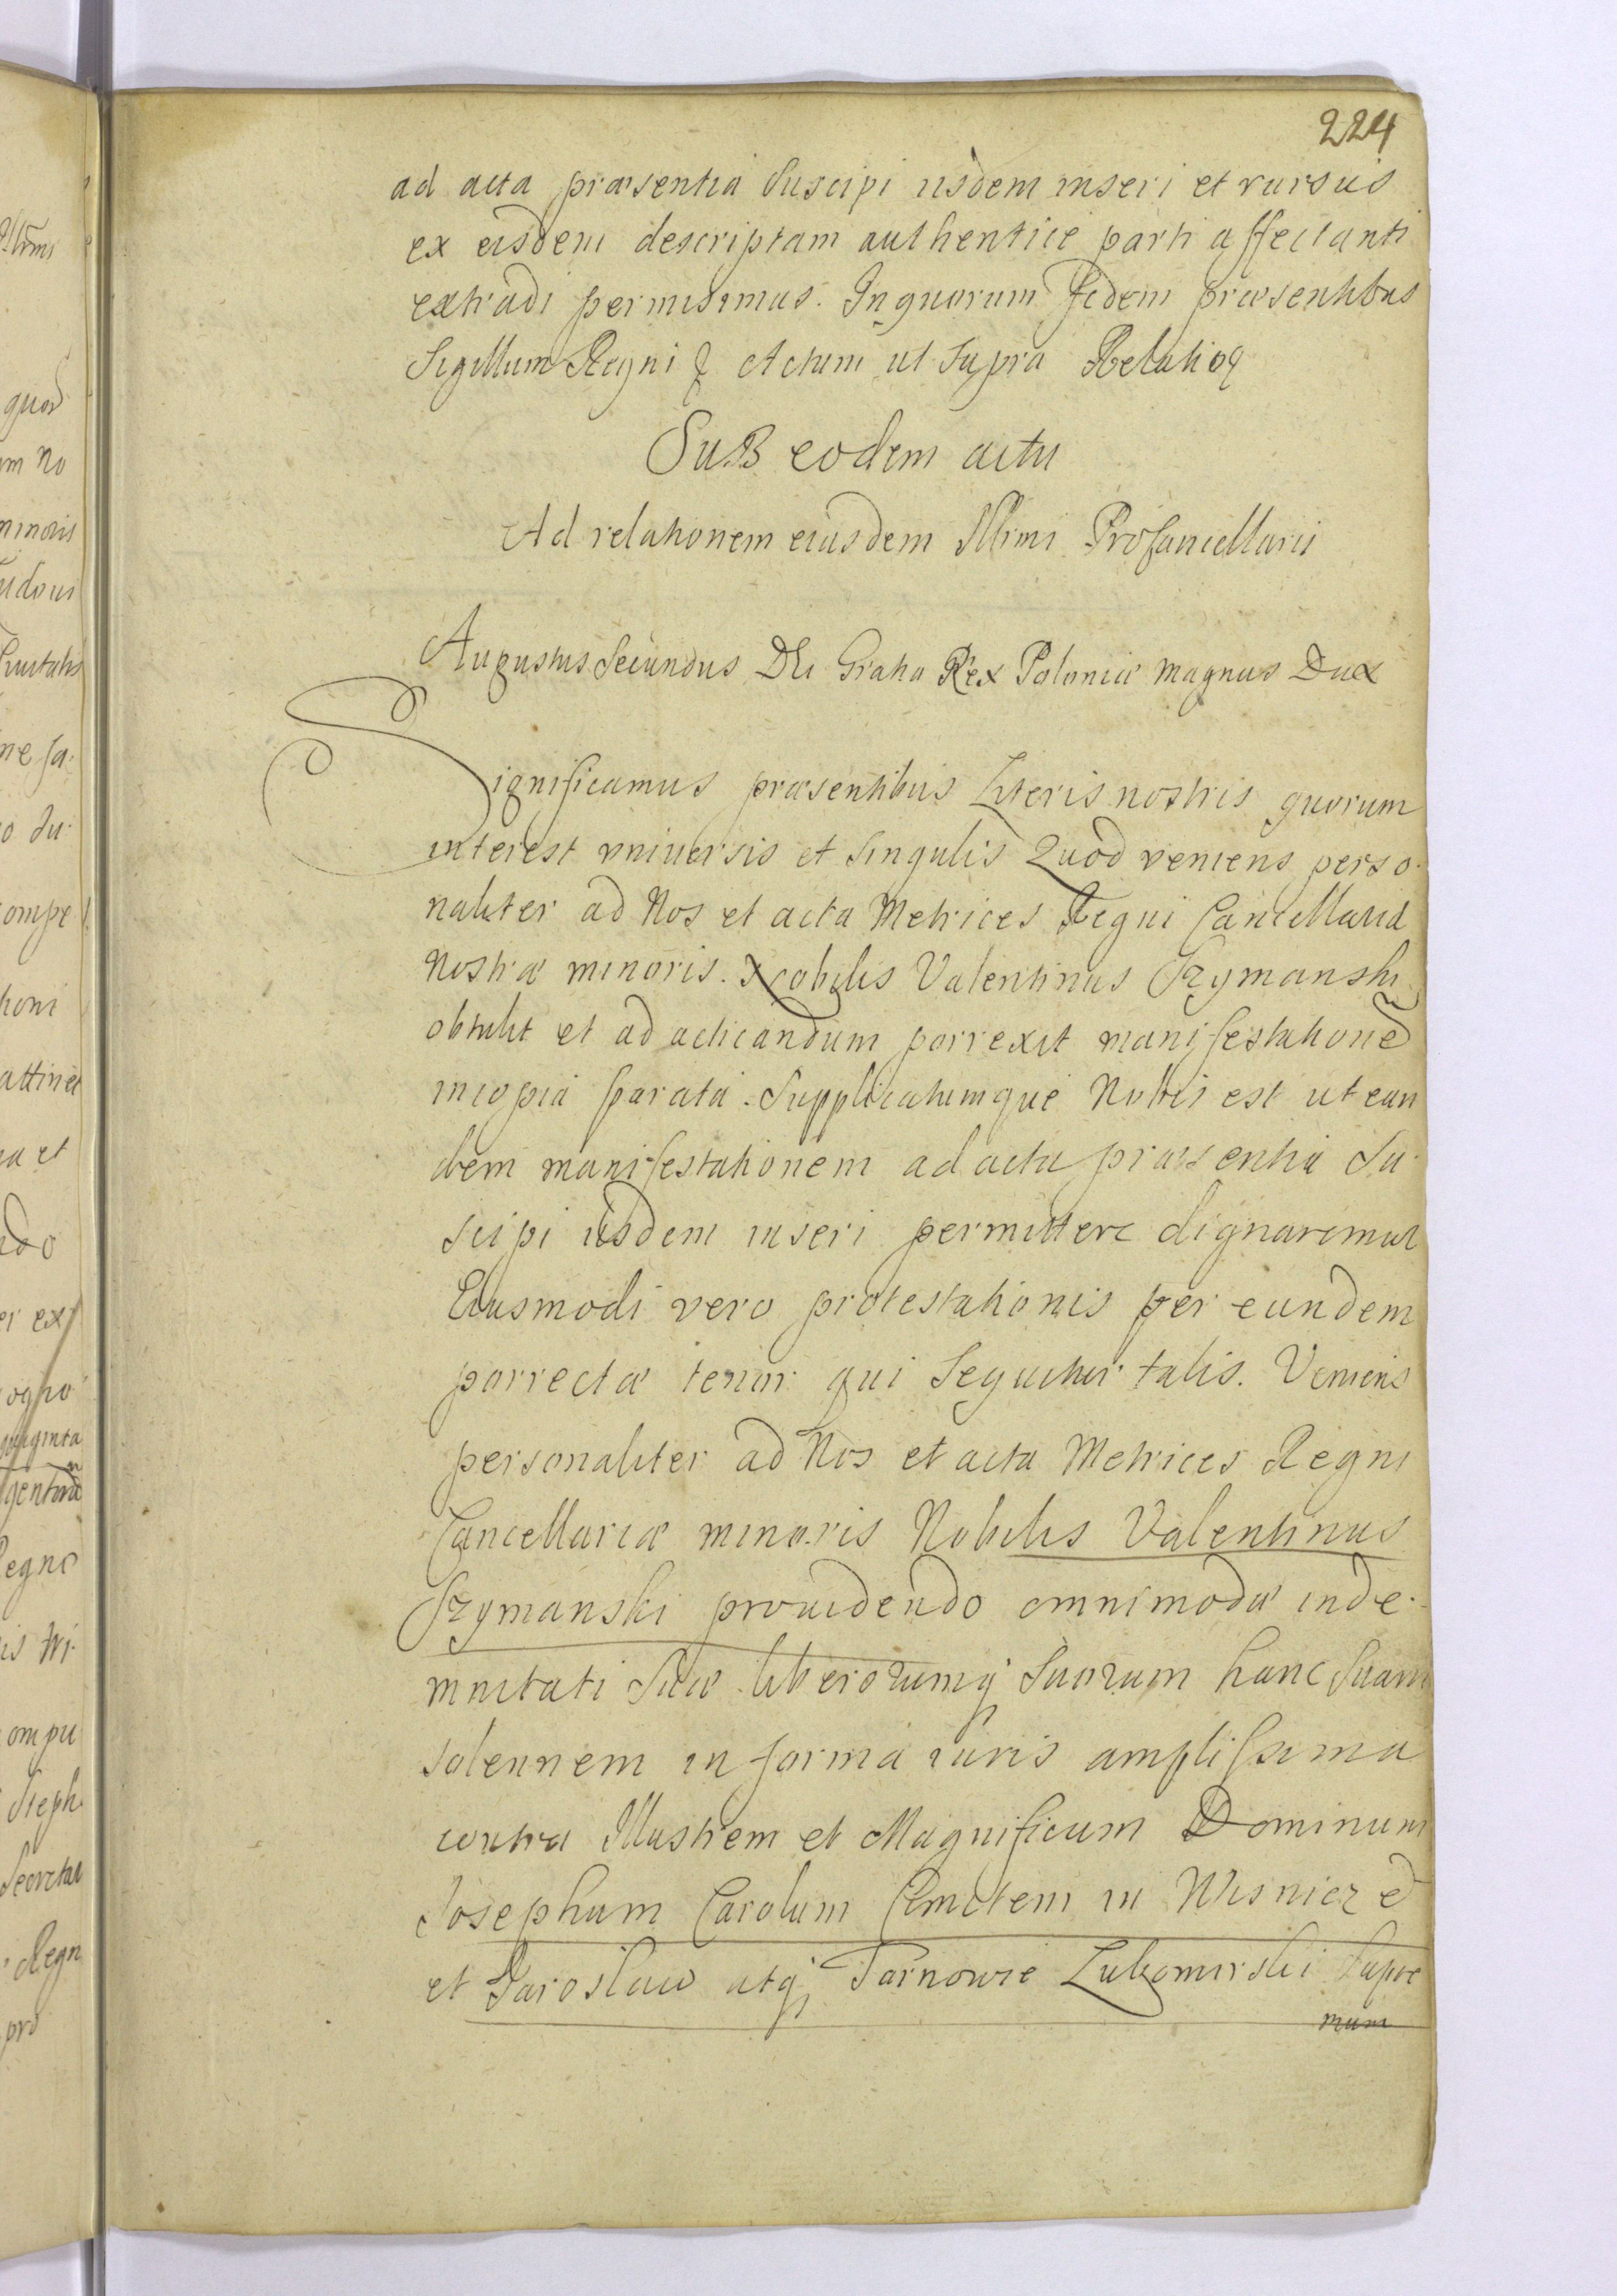 224
ad acta præsentia Suscipi iisdem inseri et rursus
ex eisdem descriptam authentice parti affectanti
extradi permisimus. In quorum fidem præsentibus
Sigillum Regni & Actum ut Supra Relatioq
SuB eodem actu
Ad relationem eiusdem Illmi ProCancellarii
Augustus Secundus DEi Gratia Rex Poloniæ Magnus Dux
Significamus præsentibus Literis nostris quorum
interest vniuersis et Singulis Quod veniens perso-
naliter ad Nos et acta Metrices Regni Cancellariæ
Nostræ minoris. Nobilis Valentinus Szymanski
obtulit et ad acticandum porrexit manifestationē
incopia parata. Supplicatumque Nobis est ut ean
dem manifestationem ad acta præsentia Su-
scipi iisdem inseri permittere dignaremur
Eiusmodi vero protestationis per eundem
porrectæ tenor qui Sequitur talis. Veniens
personaliter ad Nos et acta Metrices Regni
Cancellariæ minoris Nobilis Valentinus
Szymanski prouidendo omnimodæ inde-
mnitati Suæ liberorumq Suorum hanc Suam
solennem in forma iuris amplissima
contra Illustrem et Magnificum Dominum
Josephum Carolum Comitem in Wisnicz ed
et Jaroslaw atq Tarnowie Lubomirski Supre
mum